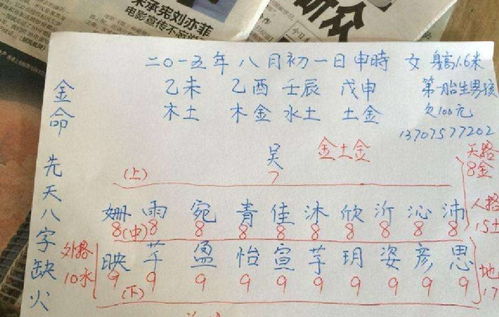 宋承宪刘亦菲
电影宣传不
二〇一五年八月初一日申時 女 身高1.6米
乙未 乙酉 壬辰 戊申 第一胎生男孩
木土 木金 水土 土金 欠100元
13707577202
金命 先天八字缺火
吴 金土金
(上) 7
天格
8金
姗 雨 宛 青 佳 沐 欣 沂 沁 沛
人格
8 (中) 8 8 8 8 8 8 8 8 8
15土
外格
映 芊 盈 怡 宣 芓 玥 姿 彦 思
10水
9 9 9 9 9 9 9 9 9 9
地
17
(下)